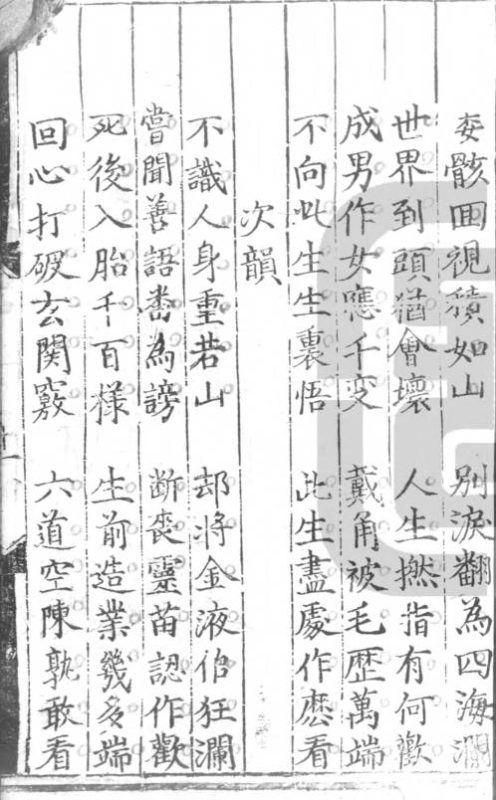 委骸囬視積如山 別淚翻為四海瀾
世界到頭猶會壞 人生撚指有何歡
成男作女應千变 戴角被毛歷萬端
不向此生生裏悟 此生盡處作麽看
次韻
不識人身重若山 却將金液俗狂瀾
嘗聞善語番為謗 斷丧靈苗認作歡
死後入胎千百様 生前造業幾多端
回心打破玄関竅 六道空陳孰敢看